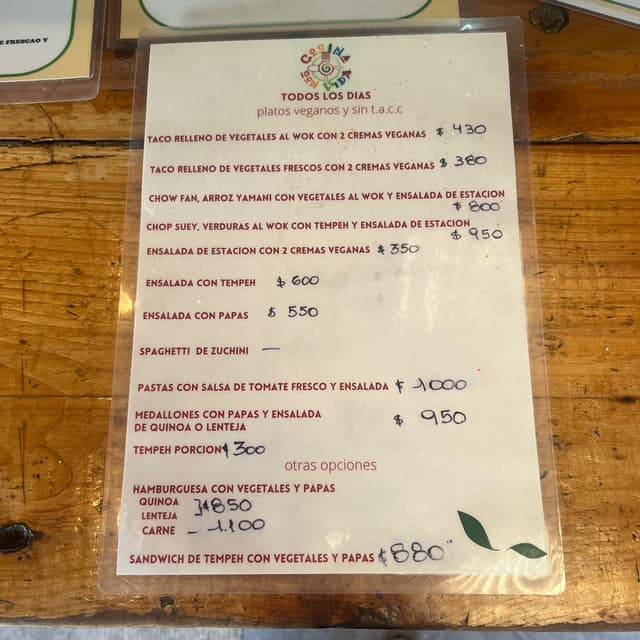 E FRESCAO Y
COCINA
VIDA
TODOS LOS DIAS
platos veganos y sin t.a.c.c
TACO RELLENO DE VEGETALES AL WOK CON 2 CREMAS VEGANAS $ 430
TACO RELLENO DE VEGETALES FRESCOS CON 2 CREMAS VEGANAS $ 380
CHOW FAN, ARROZ YAMANI CON VEGETALES AL WOK Y ENSALADA DE ESTACION
$ 800
CHOP SUEY, VERDURAS AL WOK CON TEMPEH Y ENSALADA DE ESTACION
$ 950
ENSALADA DE ESTACION CON 2 CREMAS VEGANAS $ 350
ENSALADA CON TEMPEH $ 600
ENSALADA CON PAPAS $ 550
SPAGHETTI DE ZUCHINI —
PASTAS CON SALSA DE TOMATE FRESCO Y ENSALADA $ 1000
MEDALLONES CON PAPAS Y ENSALADA
DE QUINOA O LENTEJA $ 950
TEMPEH PORCION $300
otras opciones
HAMBURGUESA CON VEGETALES Y PAPAS
QUINOA
LENTEJA } $850
CARNE – 1.100
SANDWICH DE TEMPEH CON VEGETALES Y PAPAS $880"